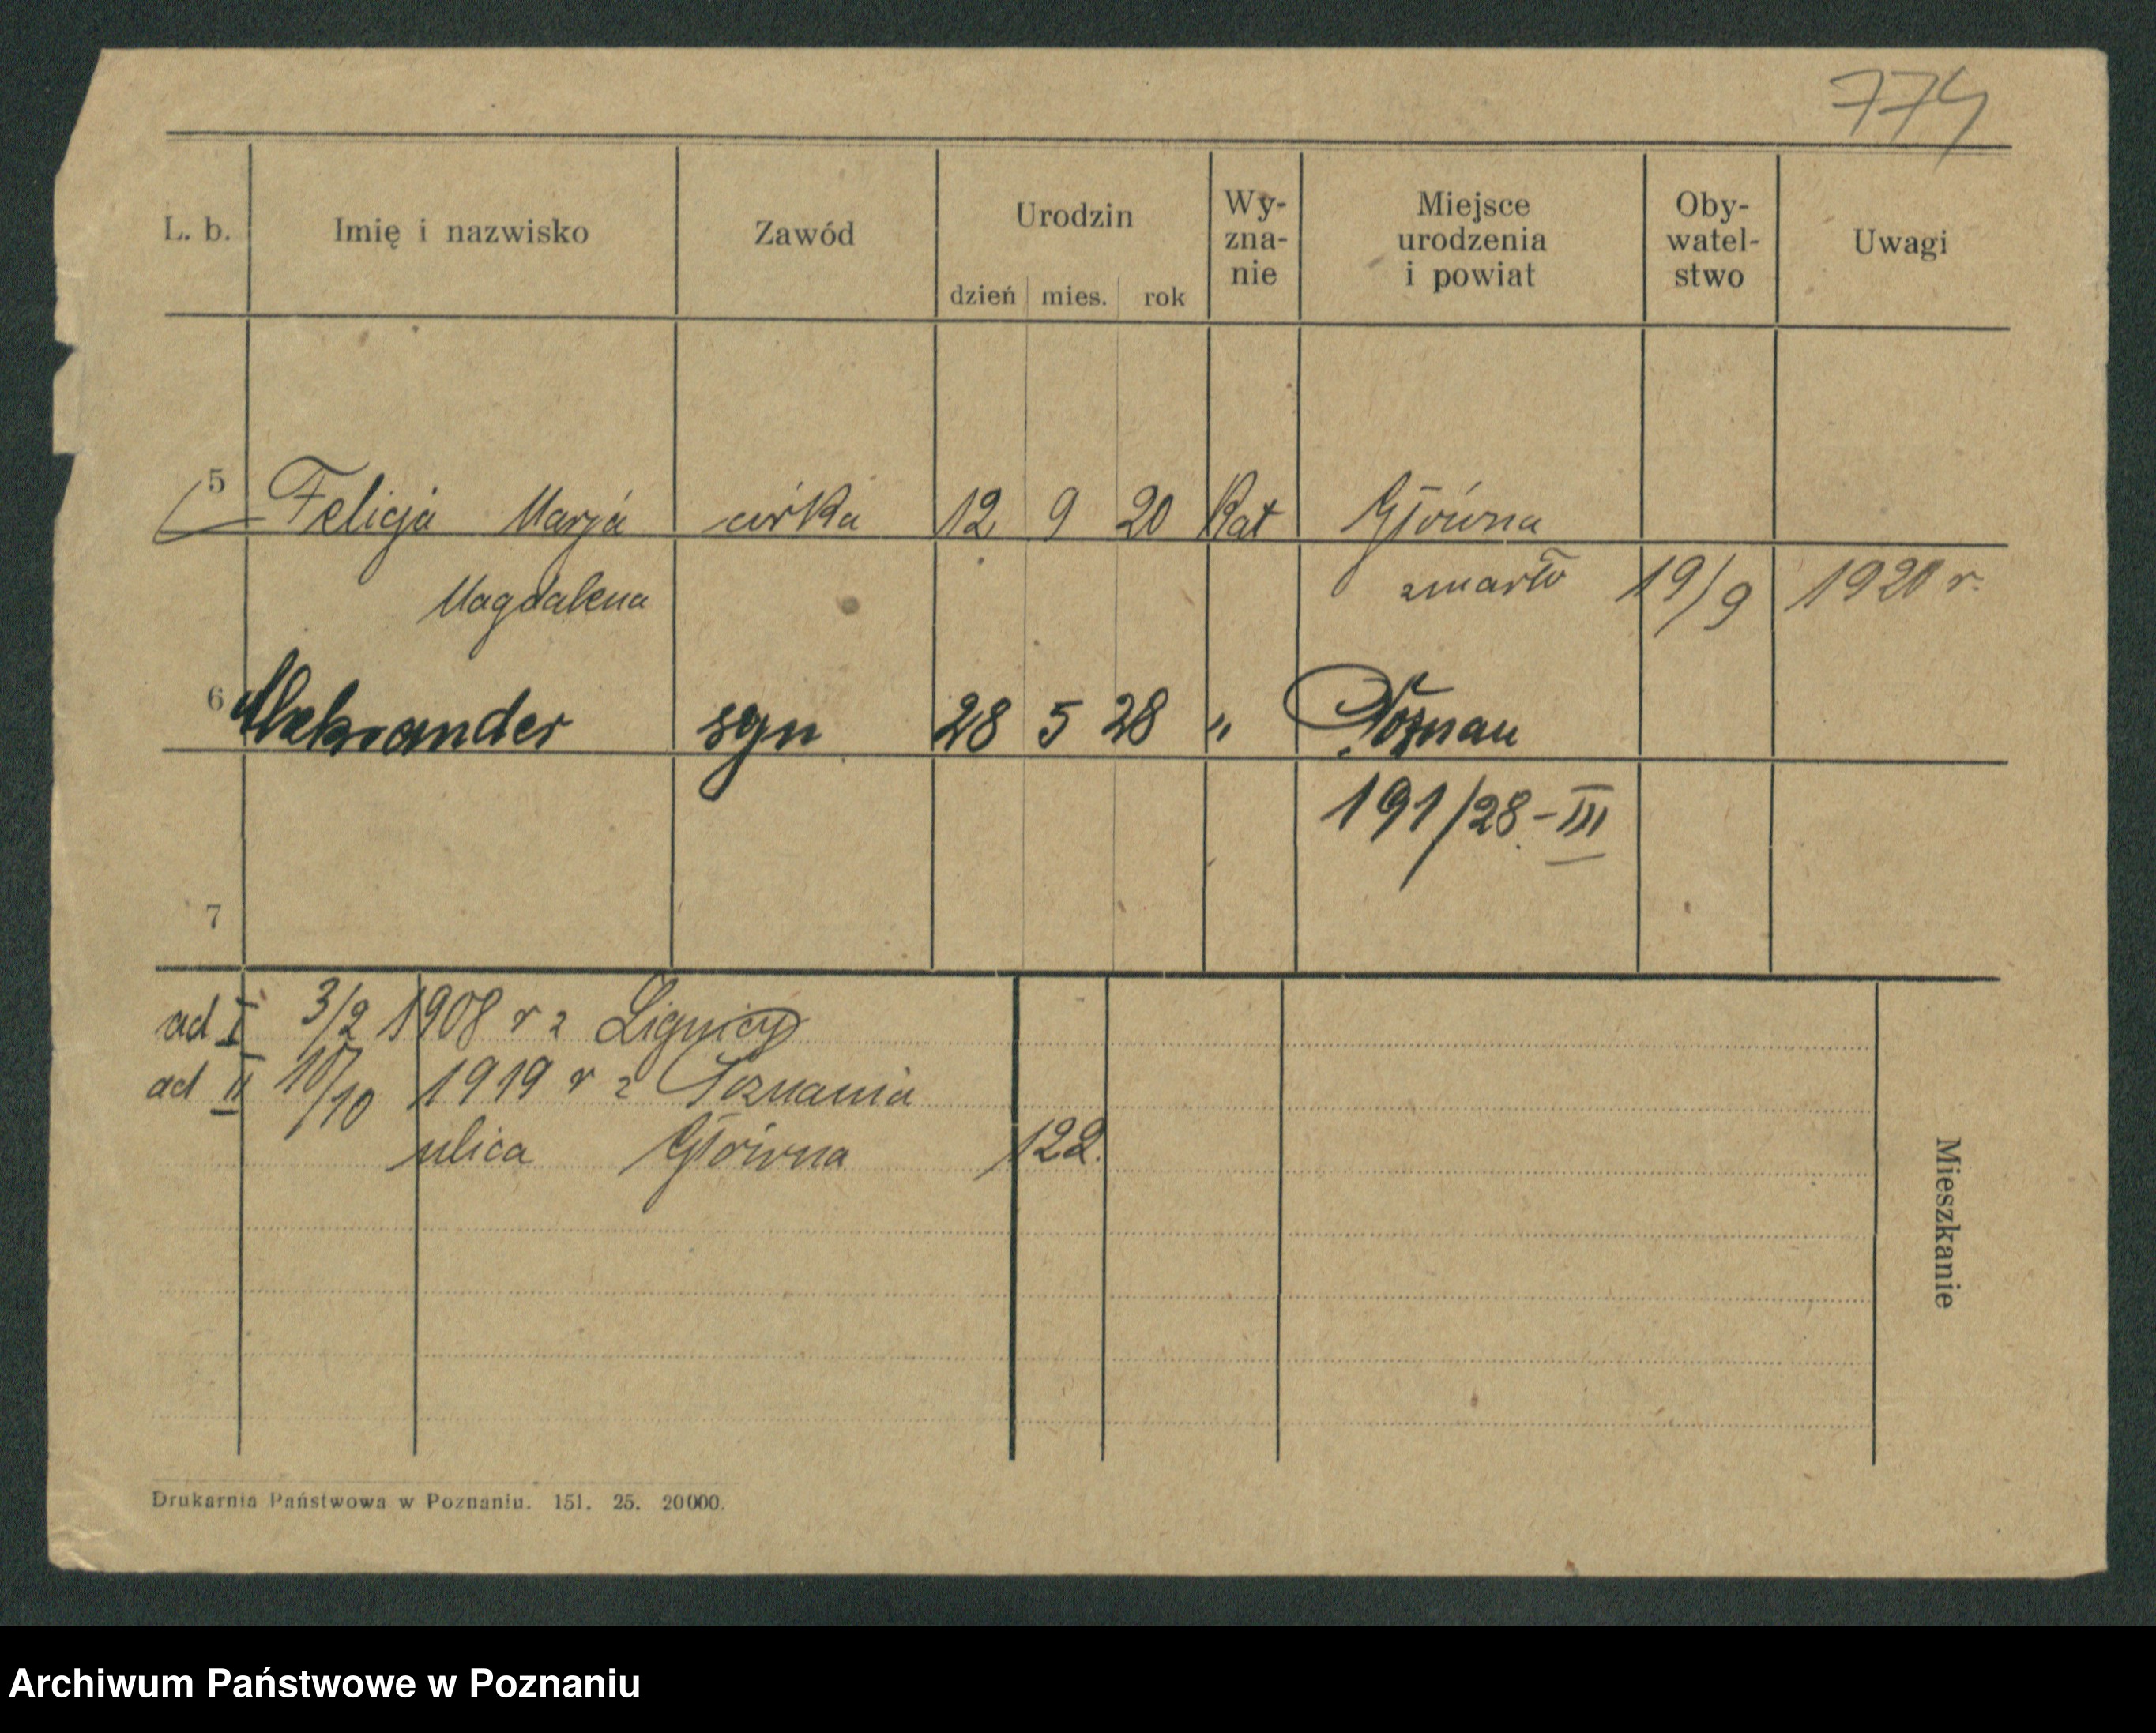 774
L. b. Imię i nazwisko Zawód Urodzin dzień mies. rok Wy-zna-nie Miejsce urodzenia i powiat Oby-watel-stwo Uwagi
5 Felicja Marja córka 12 9 20 Kat Główna
Magdalena zmarło 19/9 1920 r.
6 Aleksander syn 28 5 28 " Poznań
191/28-III
7
ad I 3/2 1908 r z Lignicy
ad II 10/10 1919 r z Poznania
ulica Główna 122.
Mieszkanie
Drukarnia Państwowa w Poznaniu. 151. 25. 20000.
Archiwum Państwowe w Poznaniu